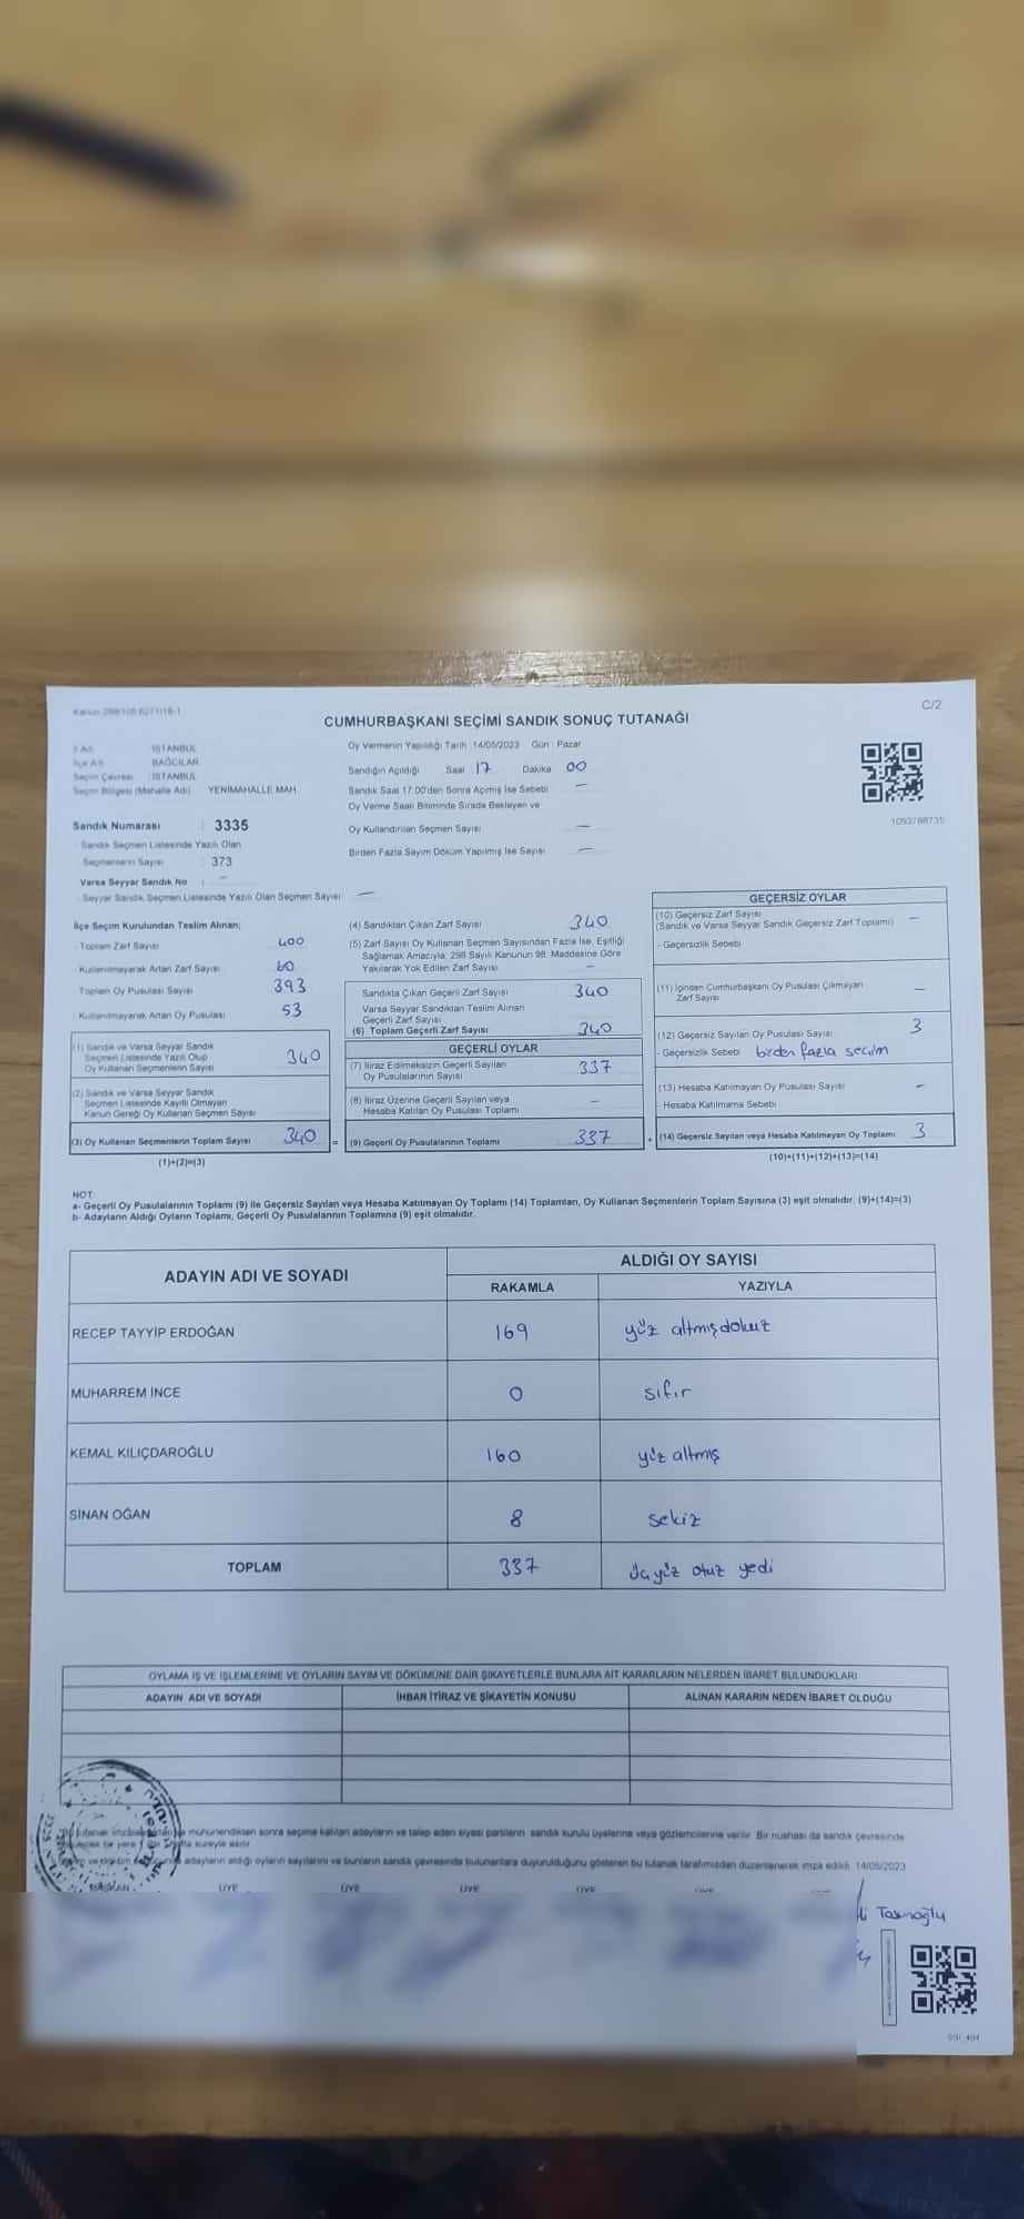 C/2
CUMHURBAŞKANI SEÇİMİ SANDIK SONUÇ TUTANAĞI
İSTANBUL
İlçe Adı BAĞCILAR
Seçim Çevresi İSTANBUL
Seçim Bölgesi (Mahalle Adı) YENİMAHALLE MAH.
Sandık Numarası : 3335
- Sandık Seçmen Listesinde Yazılı Olan
Seçmenlerin Sayısı : 373
Varsa Seyyar Sandık No : –
- Seyyar Sandık Seçmen Listesinde Yazılı Olan Seçmen Sayısı –
Oy Vermenin Yapıldığı Tarih 14/05/2023 Gün : Pazar
Sandığın Açıldığı Saat 17 Dakika 00
Sandık Saat 17.00'den Sonra Açılmış İse Sebebi –
Oy Verme Saati Bitiminde Sırada Bekleyen ve
Oy Kullandırılan Seçmen Sayısı –
Birden Fazla Sayım Döküm Yapılmış İse Sayısı –
1093788735
İlçe Seçim Kurulundan Teslim Alınan;
- Toplam Zarf Sayısı 400
- Kullanılmayarak Artan Zarf Sayısı 60
- Toplam Oy Pusulası Sayısı 393
- Kullanılmayarak Artan Oy Pusulası 53
(1) Sandık ve Varsa Seyyar Sandık
Seçmen Listesinde Yazılı Olup
Oy Kullanan Seçmenlerin Sayısı 340
(2) Sandık ve Varsa Seyyar Sandık
Seçmen Listesinde Kayıtlı Olmayan
Kanun Gereği Oy Kullanan Seçmen Sayısı
(3) Oy Kullanan Seçmenlerin Toplam Sayısı 340 =
(1)+(2)=(3)
(4) Sandıktan Çıkan Zarf Sayısı 340
(5) Zarf Sayısı Oy Kullanan Seçmen Sayısından Fazla İse, Eşitliği
Sağlamak Amacıyla, 298 Sayılı Kanunun 98. Maddesine Göre
Yakılarak Yok Edilen Zarf Sayısı –
Sandıkta Çıkan Geçerli Zarf Sayısı 340
Varsa Seyyar Sandıktan Teslim Alınan
Geçerli Zarf Sayısı
(6) Toplam Geçerli Zarf Sayısı 340
GEÇERLİ OYLAR
(7) İtiraz Edilmeksizin Geçerli Sayılan
Oy Pusulalarının Sayısı 337
(8) İtiraz Üzerine Geçerli Sayılan veya
Hesaba Katılan Oy Pusulası Toplamı –
(9) Geçerli Oy Pusulalarının Toplamı 337 +
GEÇERSİZ OYLAR
(10) Geçersiz Zarf Sayısı
(Sandık ve Varsa Seyyar Sandık Geçersiz Zarf Toplamı) –
- Geçersizlik Sebebi
(11) İçinden Cumhurbaşkanı Oy Pusulası Çıkmayan
Zarf Sayısı –
(12) Geçersiz Sayılan Oy Pusulası Sayısı 3
- Geçersizlik Sebebi birden fazla seçim
(13) Hesaba Katılmayan Oy Pusulası Sayısı –
Hesaba Katılmama Sebebi
(14) Geçersiz Sayılan veya Hesaba Katılmayan Oy Toplamı 3
(10)+(11)+(12)+(13)=(14)
NOT:
a- Geçerli Oy Pusulalarının Toplamı (9) ile Geçersiz Sayılan veya Hesaba Katılmayan Oy Toplamı (14) Toplamları, Oy Kullanan Seçmenlerin Toplam Sayısına (3) eşit olmalıdır. (9)+(14)=(3)
b- Adayların Aldığı Oyların Toplamı, Geçerli Oy Pusulalarının Toplamına (9) eşit olmalıdır.
ADAYIN ADI VE SOYADI ALDIĞI OY SAYISI
RAKAMLA YAZIYLA
RECEP TAYYİP ERDOĞAN 169 yüz altmışdokuz
MUHARREM İNCE 0 sıfır
KEMAL KILIÇDAROĞLU 160 yüz altmış
SİNAN OĞAN 8 sekiz
TOPLAM 337 üçyüz otuz yedi
OYLAMA İŞ VE İŞLEMLERİNE VE OYLARIN SAYIM VE DÖKÜMÜNE DAİR ŞİKAYETLERLE BUNLARA AİT KARARLARIN NELERDEN İBARET BULUNDUKLARI
ADAYIN ADI VE SOYADI İHBAR İTİRAZ VE ŞİKAYETİN KONUSU ALINAN KARARIN NEDEN İBARET OLDUĞU
sonra seçime katılan adayların ve talep eden siyasi partilerin sandık kurulu üyelerine veya gözlemcilerine verilir. Bir nüshası da sandık çevresinde
süreyle asılır
adayların aldığı oyların sayılarını ve bunların sandık çevresinde bulunanlara duyurulduğunu gösteren bu tutanak tarafımızdan düzenlenerek imza edildi. 14/05/2023
BAŞKAN ÜYE ÜYE ÜYE ÜYE